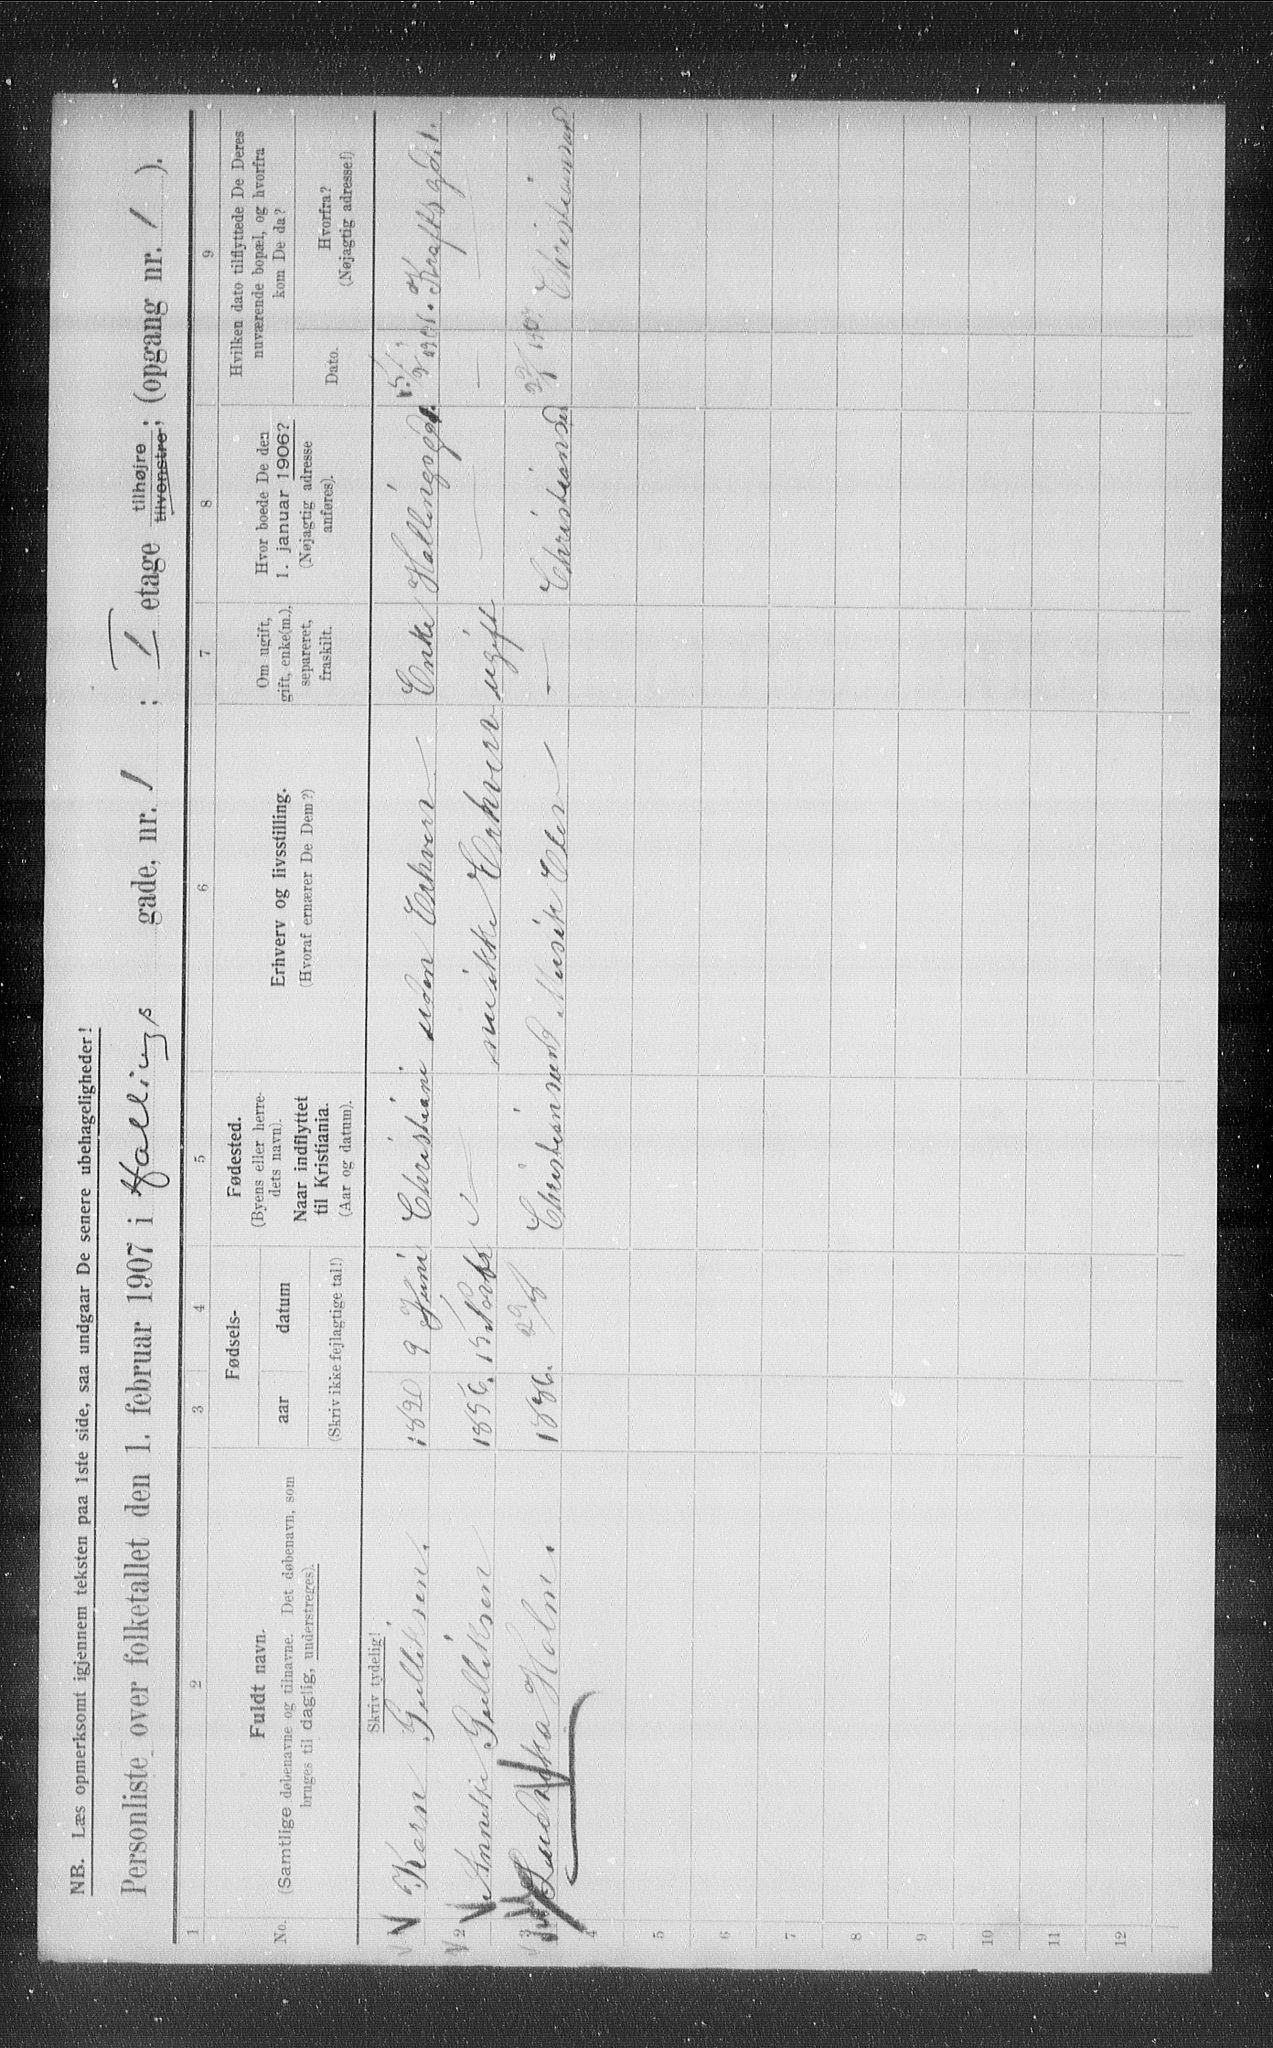 NB. Læs opmerksomt igjennem teksten paa 1ste side, saa undgaar De senere ubehageligheder!
Personliste over folketallet den 1. februar 1907 i Hallings gade, nr. 1 ; I etage tilhøjre tilvenstre; (opgang nr. 1 ).
1 2 3 4 5 6 7 8 9
No.
Fuldt navn.
(Samtlige døbenavne og tilnavne. Det døbenavn, som
bruges til daglig, understreges).
Fødsels-
aar datum
(Skriv ikke fejlagtige tal!)
Fødested.
(Byens eller herre-
dets navn).
Naar indflyttet
til Kristiania.
(Aar og datum).
Erhverv og livsstilling.
(Hvoraf ernærer De Dem?)
Om ugift,
gift, enke(m.),
separeret,
fraskilt.
Hvor boede De den
1. januar 1906?
(Nøjagtig adresse
anføres).
Hvilken dato tilflyttede De Deres
nuværende bopæl, og hvorfra
kom De da?
Dato.
Hvorfra?
(Nøjagtig adresse!)
Skriv tydelig!
Karn Gulliksen. 1820 9 Juni Christiani uden Erhverv Enke Hallingsgd 1. 1901. Kraftsgd 1.
2 Annette Gulliksen 1856. 15 Novbr — intet Erhverv ugift — — —
3 Ludovika Holm. 1886. 29/8 Christiansund Musik Elev — Christiansund Christiansund
4
5
6
7
8
9
10
11
12